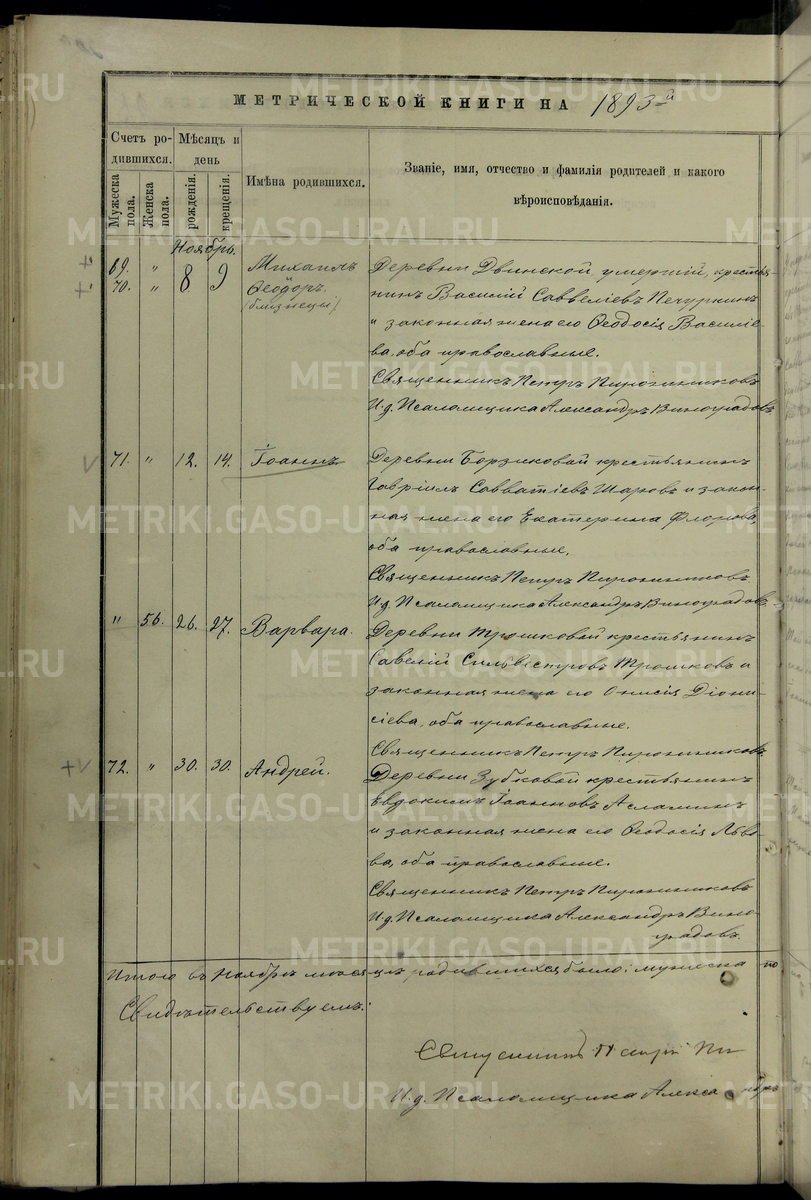 МЕТРИЧЕСКОЙ КНИГИ НА 1893-й
Счетъ родившихся.
Мѣсяцъ и день
Имѣна родившихся.
Званіе, имя, отчество и фамилія родителей и какого вѣроисповѣданія.
Мужеска пола.
Женска пола.
рожденія.
крещенія.
Ноябрь.
69. " Михаилъ Деревни Двинской, умерший, кресть-
70. " 8 9 Ѳеодоръ нинъ Василій Саввеліевъ Печуркинъ
(близнецы) и законная жена его Ѳеодосія Василіе-
ва, оба православные.
Священникъ Петръ Пироженниковъ
И.д. Псаломщика Александръ Виноградовъ
71. " 12. 14. Іоаннъ Деревни Борзиковой крестьянинъ
Гавріилъ Савватіевъ Шаровъ и закон-
ная жена его Екатерина Флорова,
оба православные.
Священникъ Петръ
И.д. Псаломщика Александръ Виноградовъ
" 56. 26. 27. Варвара. Деревни Трошковой крестьянинъ
Савелій Сильвестровъ Трошковъ и
законная жена его Онисія Діони-
сіева, оба православные.
Священникъ Петръ
72. " 30. 30. Андрей. Деревни Зубковой крестьянинъ
Евдокимъ Іоанновъ Асламинъ
и законная жена его Ѳеодосія Льво-
ва, оба православные.
Священникъ Петръ
И.д. Псаломщика Александръ Вино-
градовъ.
Итого въ Ноябрѣ мѣсяцѣ родившихся было: мужеска по
Свидѣтельствуемъ:
Священникъ Петръ Пи
И.д. Псаломщика Алекса ндръ
METRIKI.GASO-URAL.RU